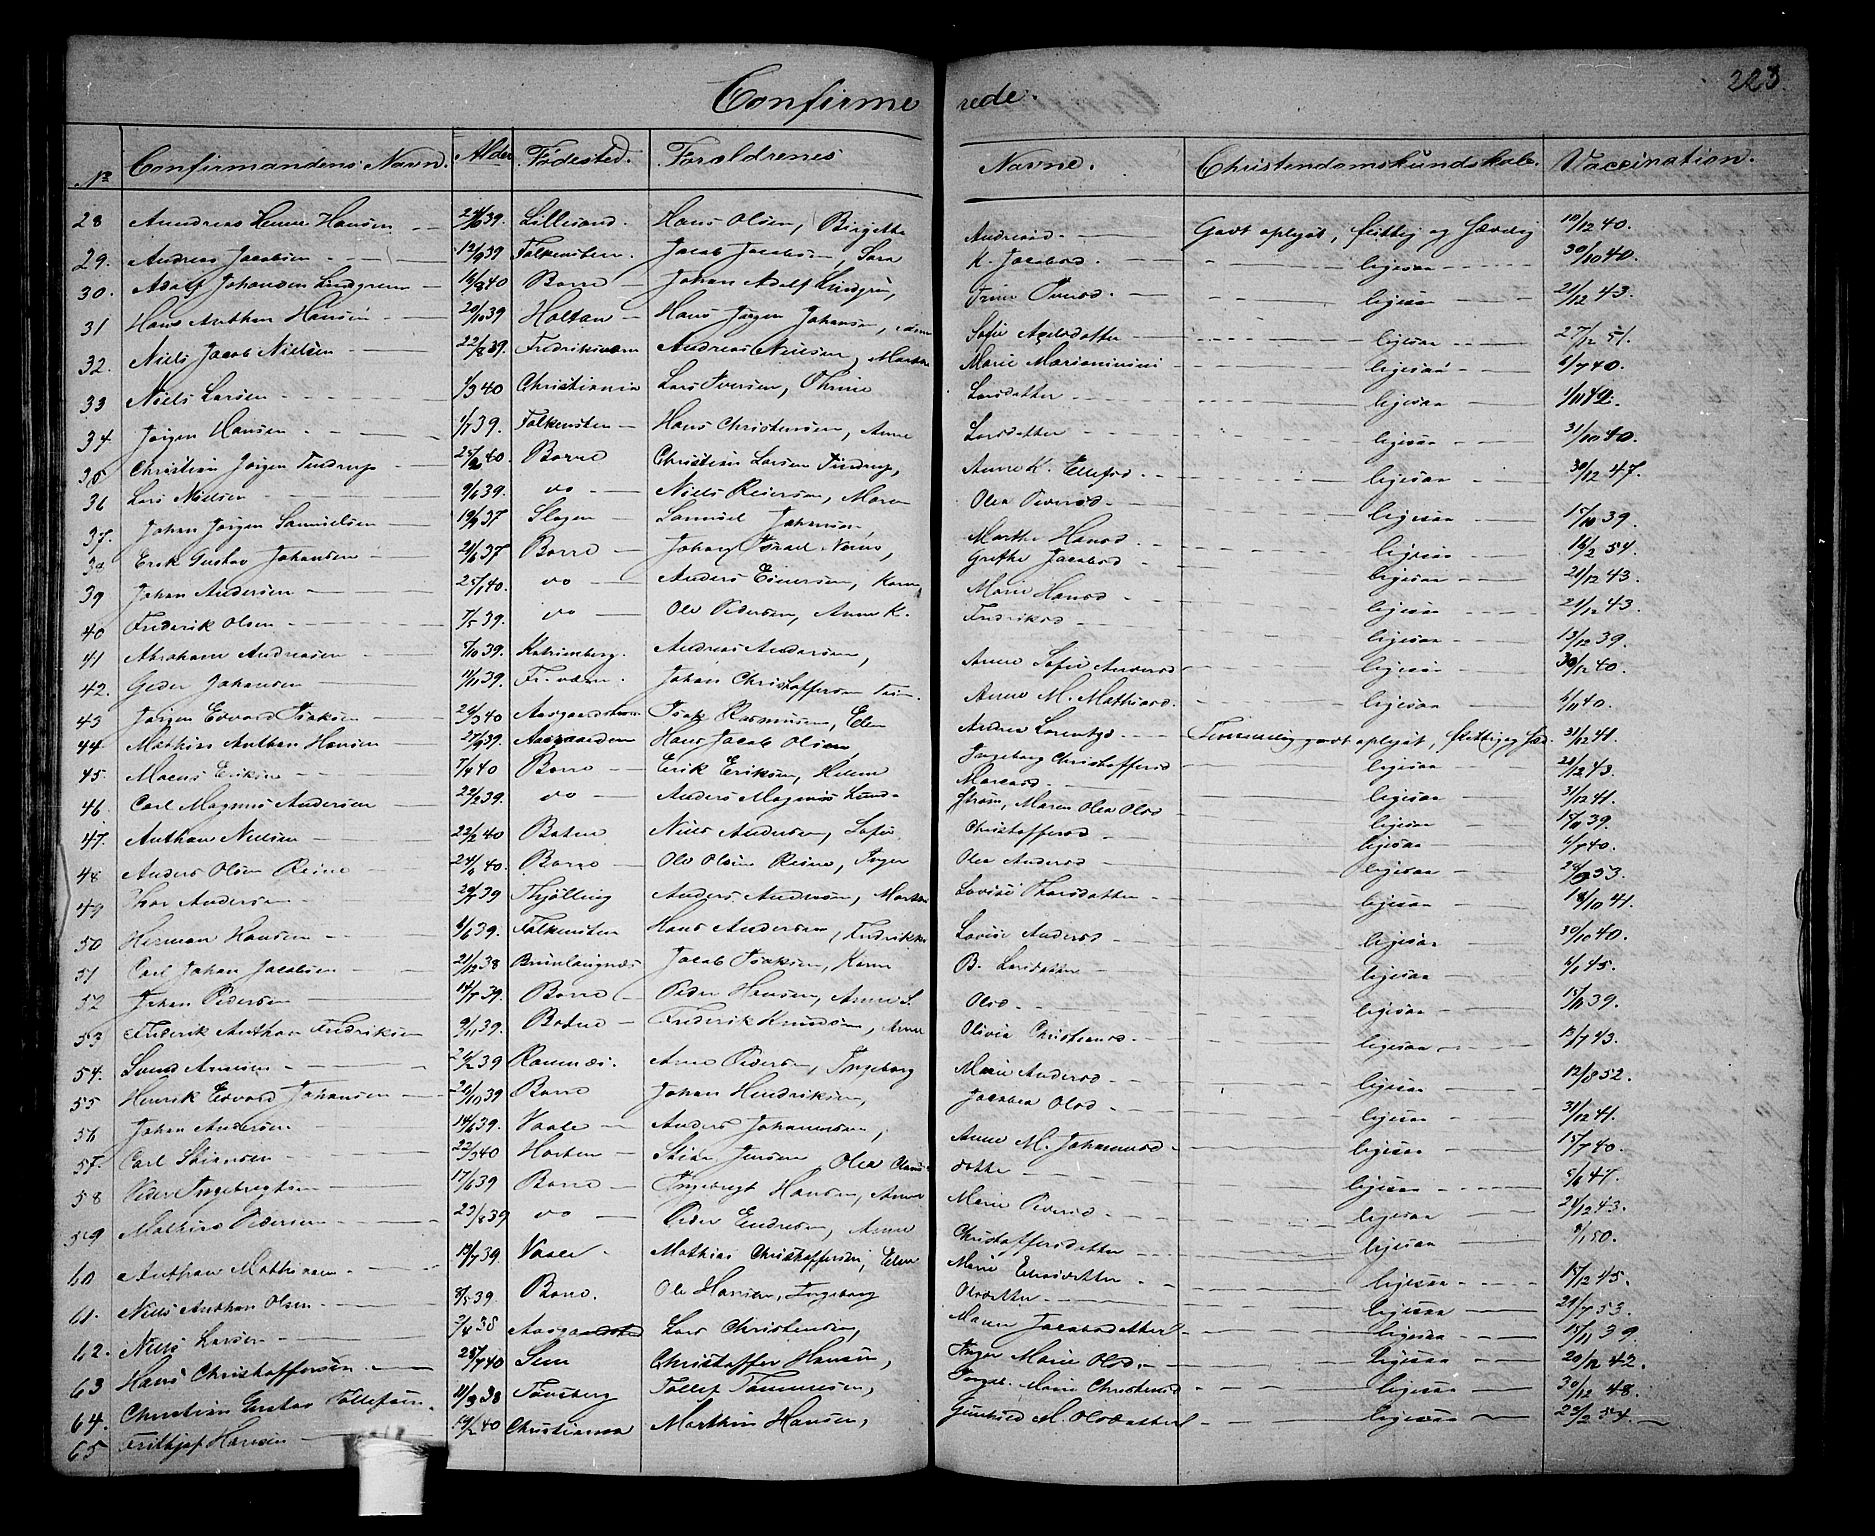 Confirmerede.
223.
No Confirmandens Navn. Alder Fødested. Forældrenes Navne. Christendomskundskab. Vaccination.
28 Hansen 39. Lillesand. Hans Olsen, Birgitte Andreasd. Godt oplyst, flittig og sædelig 10/12 40.
29. Andreas Jacobsen 12/9 39 Falkensten. Jacob Jacobsen, Sara K. Jacobsd. ligesaa 30/10 40.
30. Adolf Johansen Lindgreen 40 Borre Johan Adolf Lindgren, Trine Iversd. ligesaa 21/12 43.
31 Hans Anthon Hansen 39 Holtan Hans Jørgen Johansen, Sofie Axelsdatter ligesaa 27/2 51.
32. Niels Jacob Nielsen 22/8 39. Fredriksværn Andreas Nielsen, Marthe Marie ligesaa 6/7 40.
33 Niels Larsen 1/3 40 Christiania Lars Iversen, Thrine Larsdatter ligesaa 42.
34. Jørgen Hansen 39. Falkensten Hans Christensen, Anne Larsdatter ligesaa 31/10 40.
35 Christian Jørgen Tindrup 40. Borre Christian Larsen Tindrup, Anne K. Ellefsd ligesaa 30/12 47.
36 Lars Nielsen 9/6 39. do Niels Reiersen, Maren Olea Iversd ligesaa 39.
37. Johan Jørgen Samuelsen 19/9 37 Slagen Samuel Johansen Marthe Hansd ligesaa 16/2 54.
38 Erik Gustav Johansen 37 Borre Johan Israel Grethe Jacobsd ligesaa 21/12 43.
39 Johan Andersen 25/1 40. do Anders Einersen, Karen Marie Hansd ligesaa 21/12 43.
40 Frederik Olsen 7/5 39. do Ole Pedersen, Anne K. Fredriksd ligesaa 13/12 39.
41 Abraham Andreasen 7/10 39. Andreas Andersen, Anne Sofie Andersd ligesaa 30/12 40.
42. Johansen 11/11 39. Fr. værn. Johan Christoffersen Anne M. Mathiasd. ligesaa 40.
43 Jørgen Edvard Isaksen 40 Isak Rasmusen, Elen Andrea Lorentzd. Temmelig godt oplyst, flittig og sæd. 31/12 41.
44. Mathias Anthon Hansen 27/9 39. Aasgaarden Hans Jacob Olsen, Ingeborg Christoffersd ligesaa 43.
45. Eriksen 7/7 40 Borre Erik Eriksen, Helene ligesaa 31/12 41.
46. Carl Magnus Andersen 22/2 39. do Anders Magnus Lundstrøm, Maren Olea Olsd ligesaa 39.
47. Anthon Nielsen 22/2 40 Niels Andersen, Sofie Christoffersd ligesaa 40.
48 Anders Olsen 40. Borre Ole Olsen Inger Olea Andersd ligesaa 53.
49 Andersen 39 Thjølling Anders Andersen, Marthe Lovise Thorsdatter ligesaa 18/10 41.
50 Herman Hansen 39. Falkensten Hans Andersen, Fredrikke Lovise Andersd ligesaa 30/10 40.
51 Carl Johan Jacobsen 21/12 38 Brunlaugnæs Jacob Isaksen, Karen B. Larsdatter ligesaa 45.
52 Johan Pedersen 14/7 39. Borre Peder Hansen, Anne S. Olsd ligesaa 39.
53 Frederik Anthon Fredriksen 9/11 39. Frederik Knudsen, Anne Olivia Christiansd ligesaa 43.
54. Svend Arnesen 39 Ramnæs. Arne Pedersen, Ingeborg Marie Andersd ligesaa 12/8 52.
55 Henrik Edvard Johansen 39 Borre Johan Hendriksen, Jacobea Olsd ligesaa 31/12 41.
56 Johan Andersen 14/6 39. Vaale Anders Johannesen, Anne M. Johannesd ligesaa 15/7 40.
57. Carl Stiansen 40 Horten Stian Jensen Olea datter ligesaa 5/6 47.
58 Peder Ingebregtsen 17/6 39 Borre Ingebregt Hansen, Anne Marie Iversd. ligesaa 43.
59 Mathias Pedersen 23/8 39 do Peder Endresen, Anne Christoffersdatter ligesaa 50.
60 Anthon Mathiasen 39 Vaale. Mathias Christoffersen, Elen Marie ligesaa 45.
61. Niels Anthon Olsen 3/5 39. Borre. Ole Hansen, Ingeborg Olsdatter ligesaa 53.
62. Niels Larsen 38 Lars Christensen, Maren Jacobsdatter ligesaa 39.
63 Hans Christoffersen 40 Sem Christoffer Hansen, Inger Marie Olsd. ligesaa 42.
64. Christian Gustav Tollefsen. 38 Tønsberg Tollef Tønnesen, Marie Christensd ligesaa 30/12 48.
65 Frithjof Hansen 40 Christiania Marthin Hansen, Gunhild M. Olsdatter ligesaa 54.